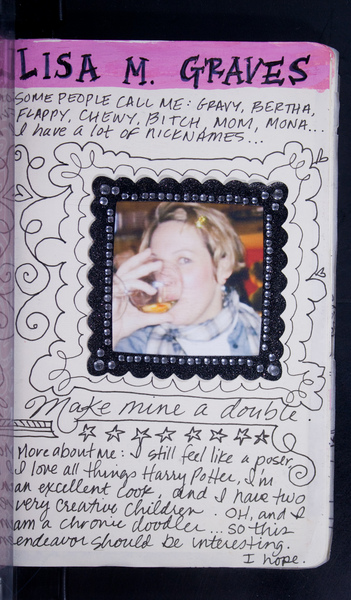 LISA M. GRAVES
SOME PEOPLE CALL ME: GRAVY, BERTHA,
FLAPPY, CHEWY, BITCH, MOM, MONA...
I have a lot of NICKNAMES...
Make mine a double.
More about me: I still feel like a poser,
I love all things Harry Potter, I'm
an excellent cook, and I have two
very creative children. OH, and I
am a chronic doodler... so this
endeavor should be interesting.
I hope.